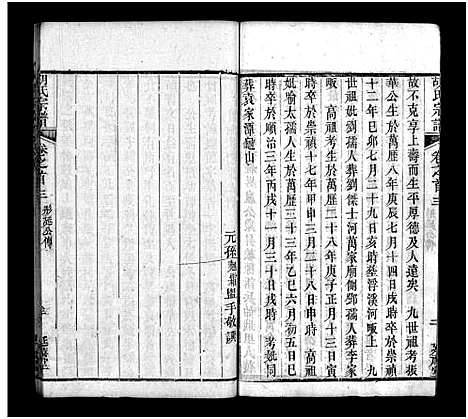 胡氏宗譜
卷之首三
故不克享上壽而生平厚德及人遠矣 九世祖考
華公生於萬歷八年庚辰七月十四日戌時卒於崇禎
十二年己卯七月二十九日亥時葬浮溪河畈上 九
世祖妣劉孺人葬劉傑士河萬家廟側鄧孺人葬李家
畈上 高祖考生於萬歷三十二年庚子正月十三日寅
時卒於崇禎十七年甲申三月二十八日申時 高祖
妣喻太孺人生於萬歷三十三年乙巳六月初五日巳
時卒於順治三年丙戌十一月三十日戌時 考妣同
葬袁家潭山
元孫 盥手敬譔
胡氏宗譜
卷之首三
彤廷公傳